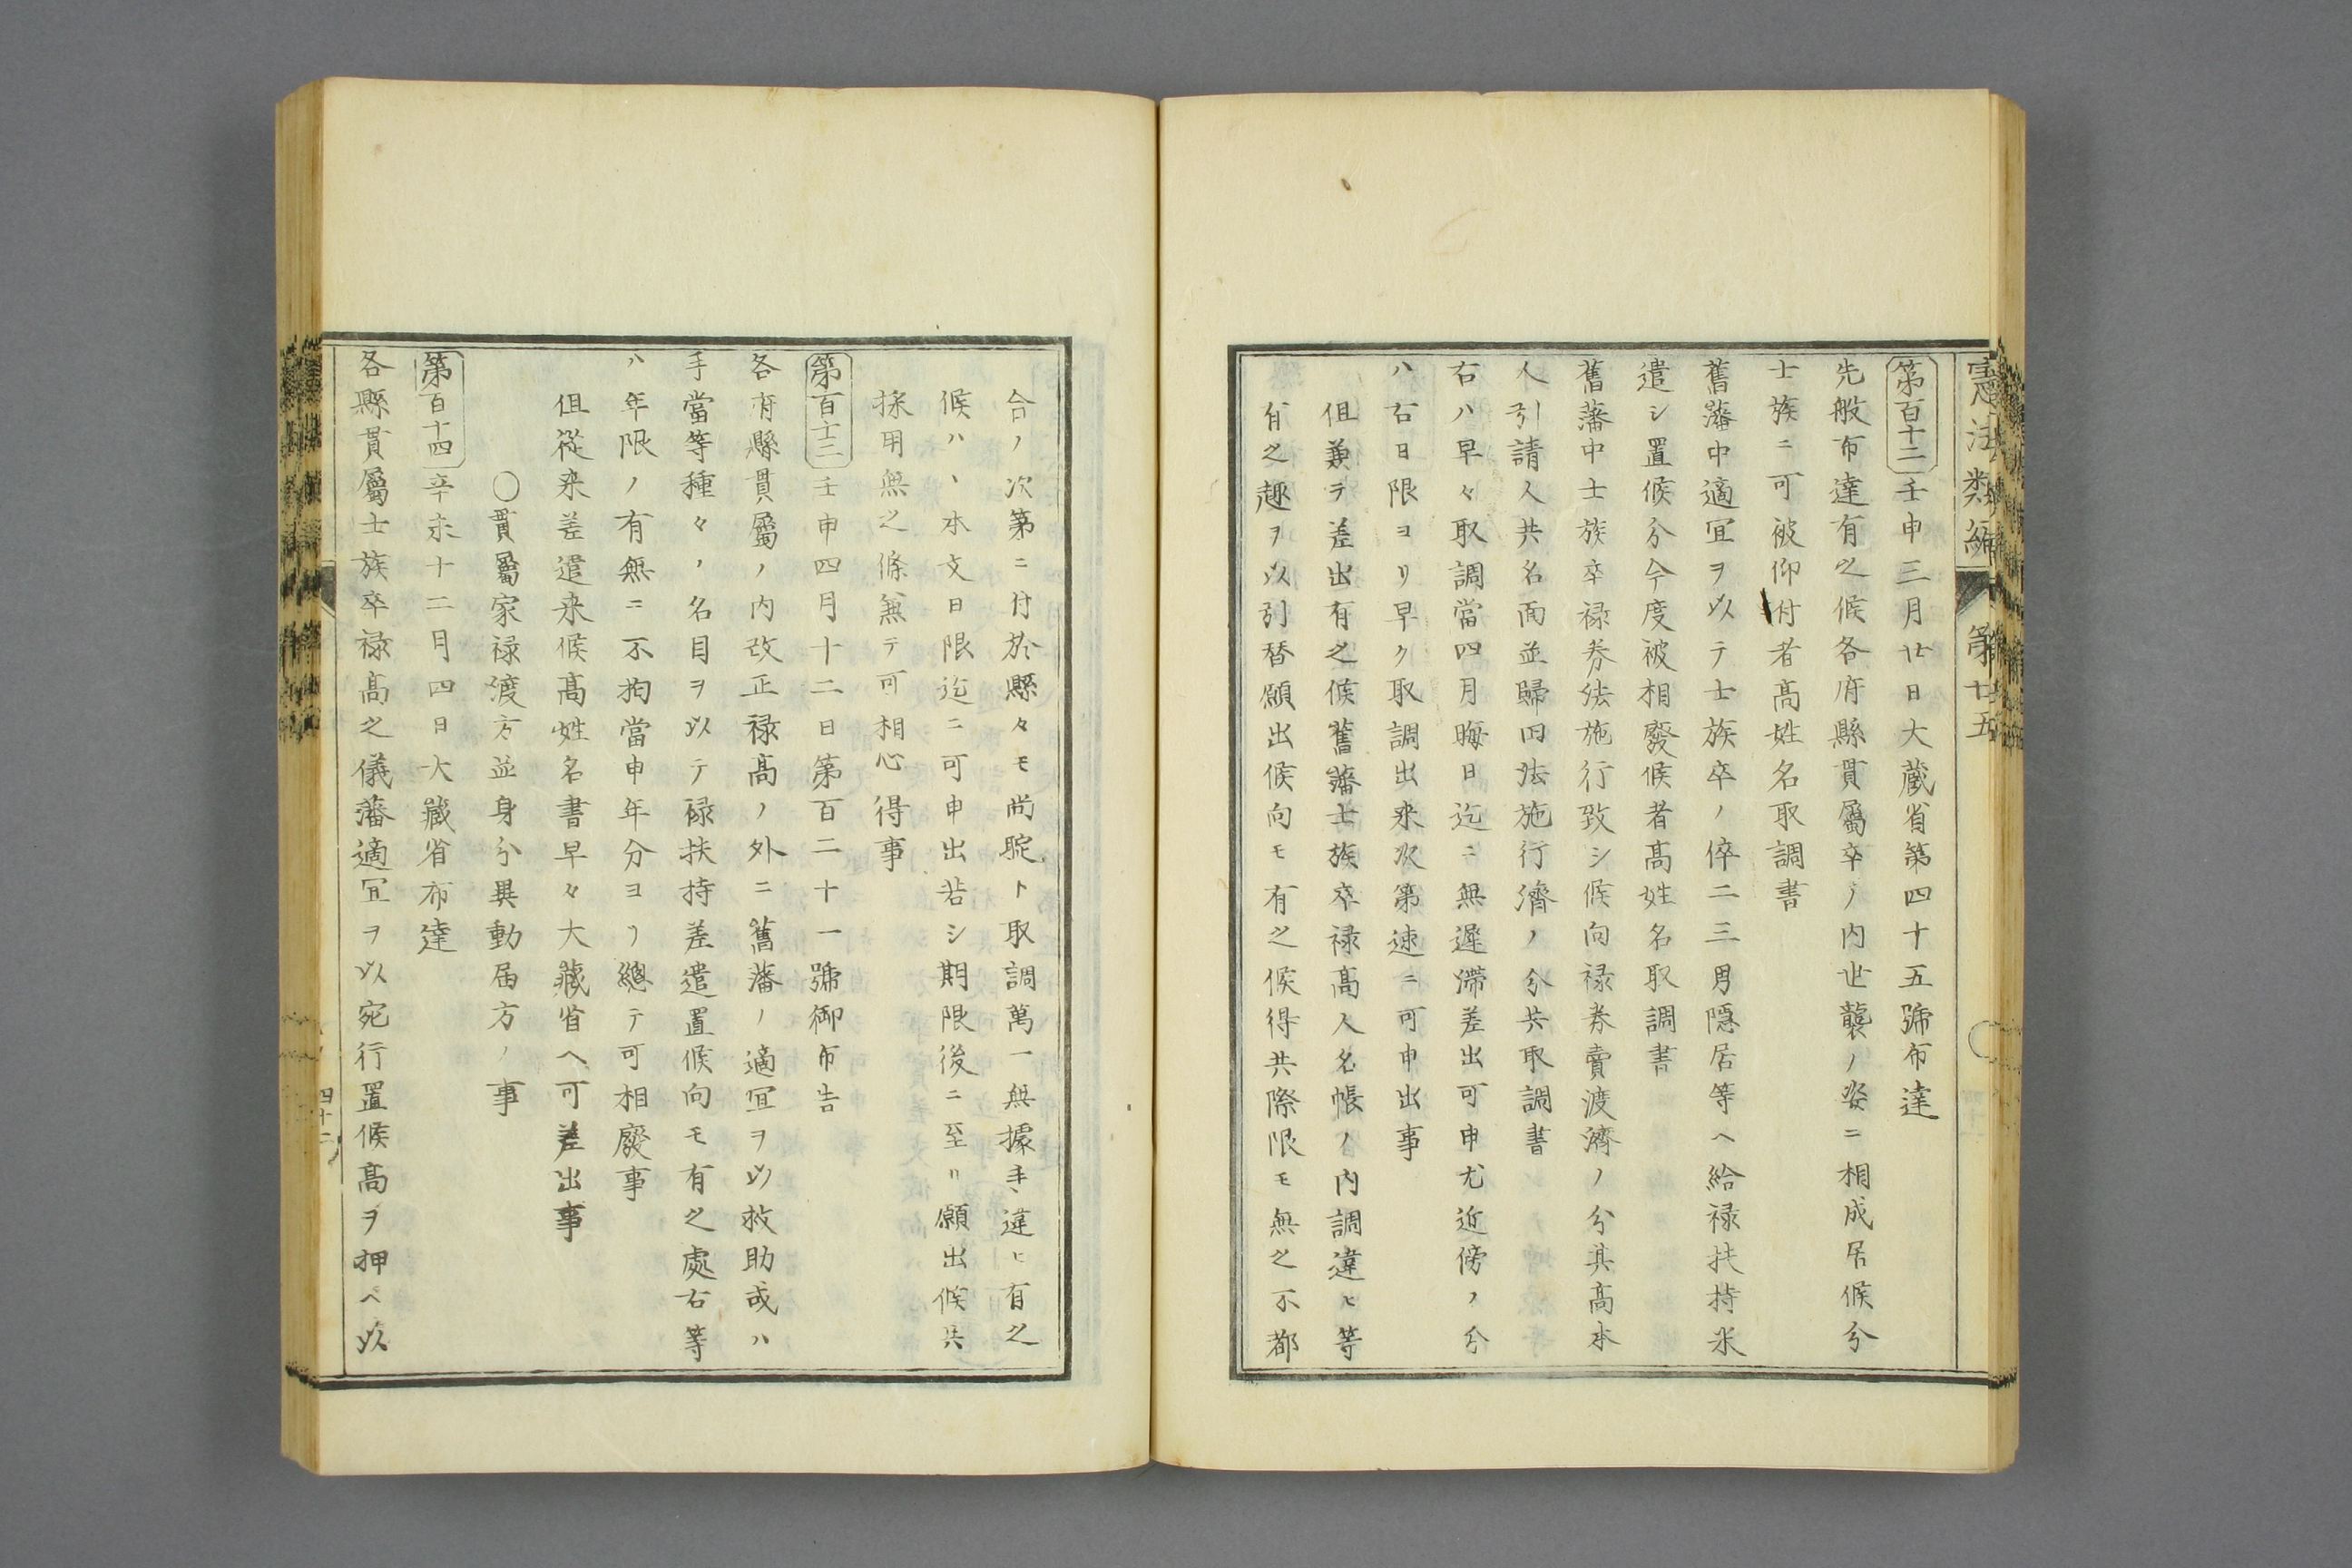 憲法類編 第十五
第百十二 壬申三月廿日大蔵省第四十五號布達
先般布達有之候各府縣貫屬卒ノ内世襲ノ姿ニ相成居候分
士族ニ可被仰付者髙姓名取調書
舊藩中適冝ヲ以テ士族卒ノ倅二三男隱居等ヘ給禄扶持米
遣シ置候分今度被相廢候者髙姓名取調書
舊藩中士族卒禄券法施行致シ候向禄券賣渡濟ノ分其髙本
人引請人共名面並歸田法施行濟ノ分共取調書
右ハ早々取調當四月晦日迄ニ無遲滯差出可申尤近傍ノ分
ハ右日限ヨリ早ク取調出来次第速ニ可申出事
但兼テ差出有之候舊藩士族卒禄髙人名帳ノ内調違ヒ等
有之趣ヲ以引替願出候向モ有之候得共際限モ無之不都
合ノ次第ニ付於縣々モ尚聢ト取調萬一無據手違ヒ有之
候ハヽ本文日限迄ニ可申出若シ期限後ニ至リ願出候共
採用無之條兼テ可相心得事
第百十三 壬申四月十二日第百二十一號御布告
各府縣貫屬ノ内改正禄髙ノ外ニ舊藩ノ適冝ヲ以救助或ハ
手當等種々ノ名目ヲ以テ禄扶持差遣置候向モ有之處右等
ハ年限ノ有無ニ不拘當申年分ヨリ總テ可相廢事
但從来差遣来候髙姓名書早々大藏省ヘ可差出事
〇貫屬家禄渡方並身分異動届方ノ事
第百十四 辛未十二月四日大藏省布達
各縣貫屬士族卒禄髙之儀藩適冝ヲ以宛行置候髙ヲ押ヘ以
四十二